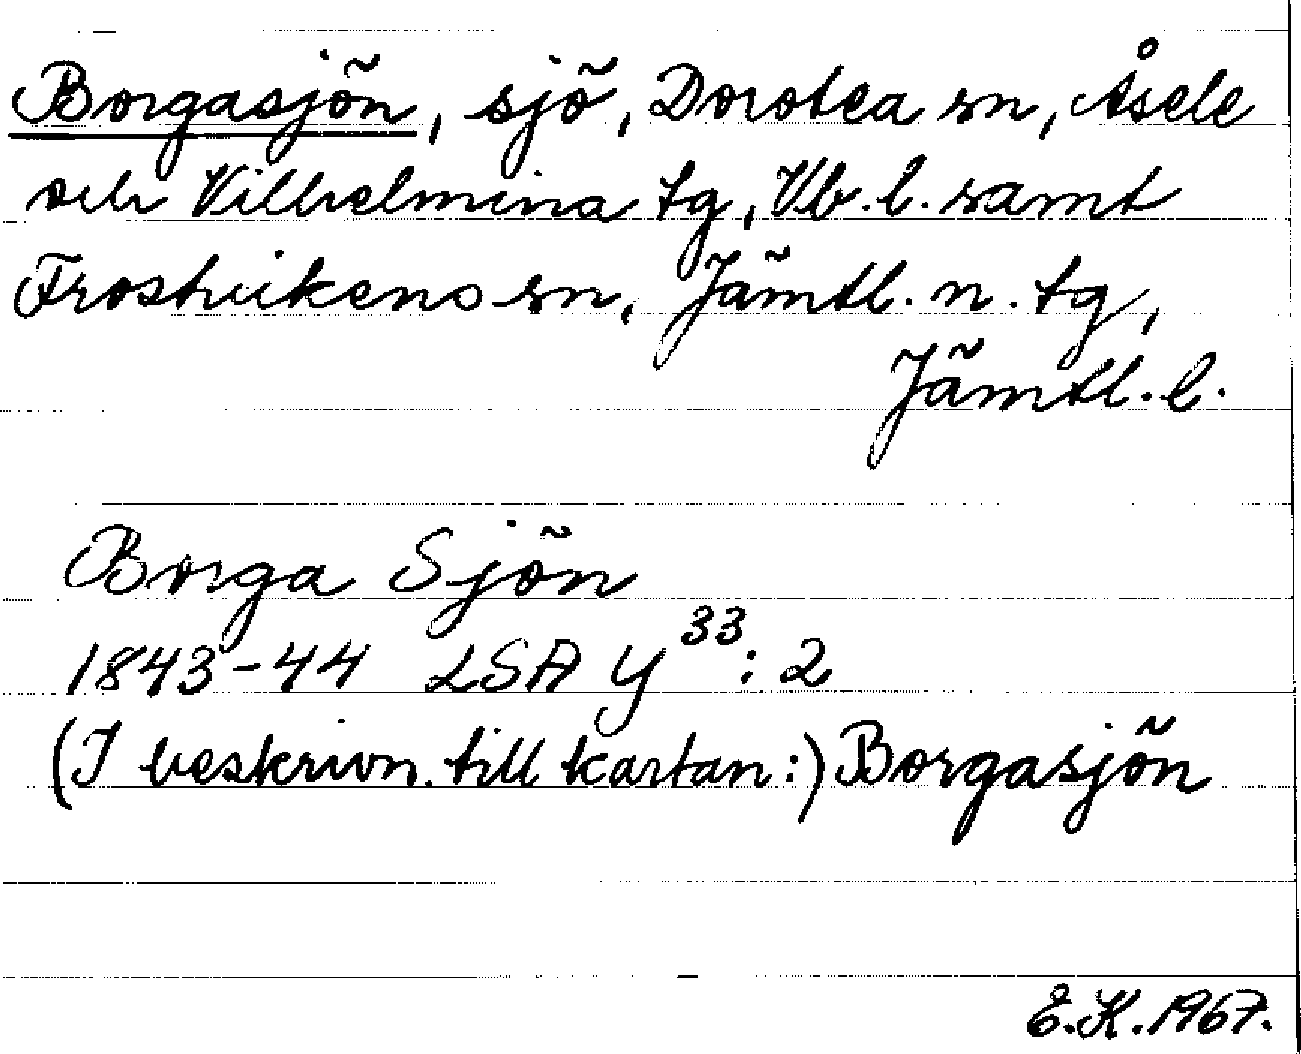 Borgasjön, sjö, Dorotea sn, Åsele
och Vilhelmina tg, Vb. l. samt
Frostvikens sn, Jämtl. n. tg,
Jämtl. l.
Borga Sjön
1843-44 LSA Y 33: 2
(I beskrivn. till kartan:) Borgasjön
E.K. 1967.